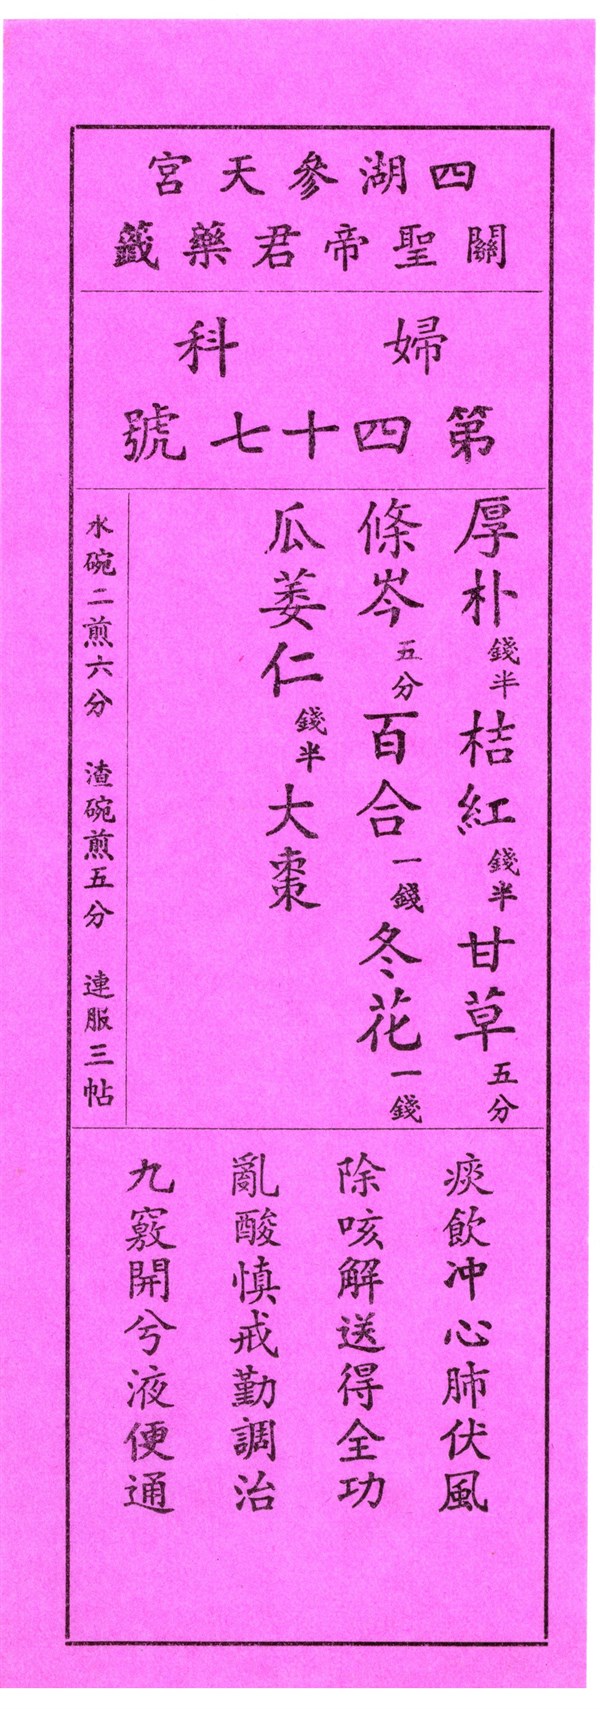 四湖參天宮
關聖帝君藥籤
婦科
第四十七號
厚朴錢半桔紅錢半甘草五分
條岑五分百合一錢冬花一錢
瓜蔞仁錢半大棗
水碗二煎六分 渣碗煎五分 連服三帖
痰飲冲心肺伏風
除咳解送得全功
亂酸慎戒勤調治
九竅開兮液便通